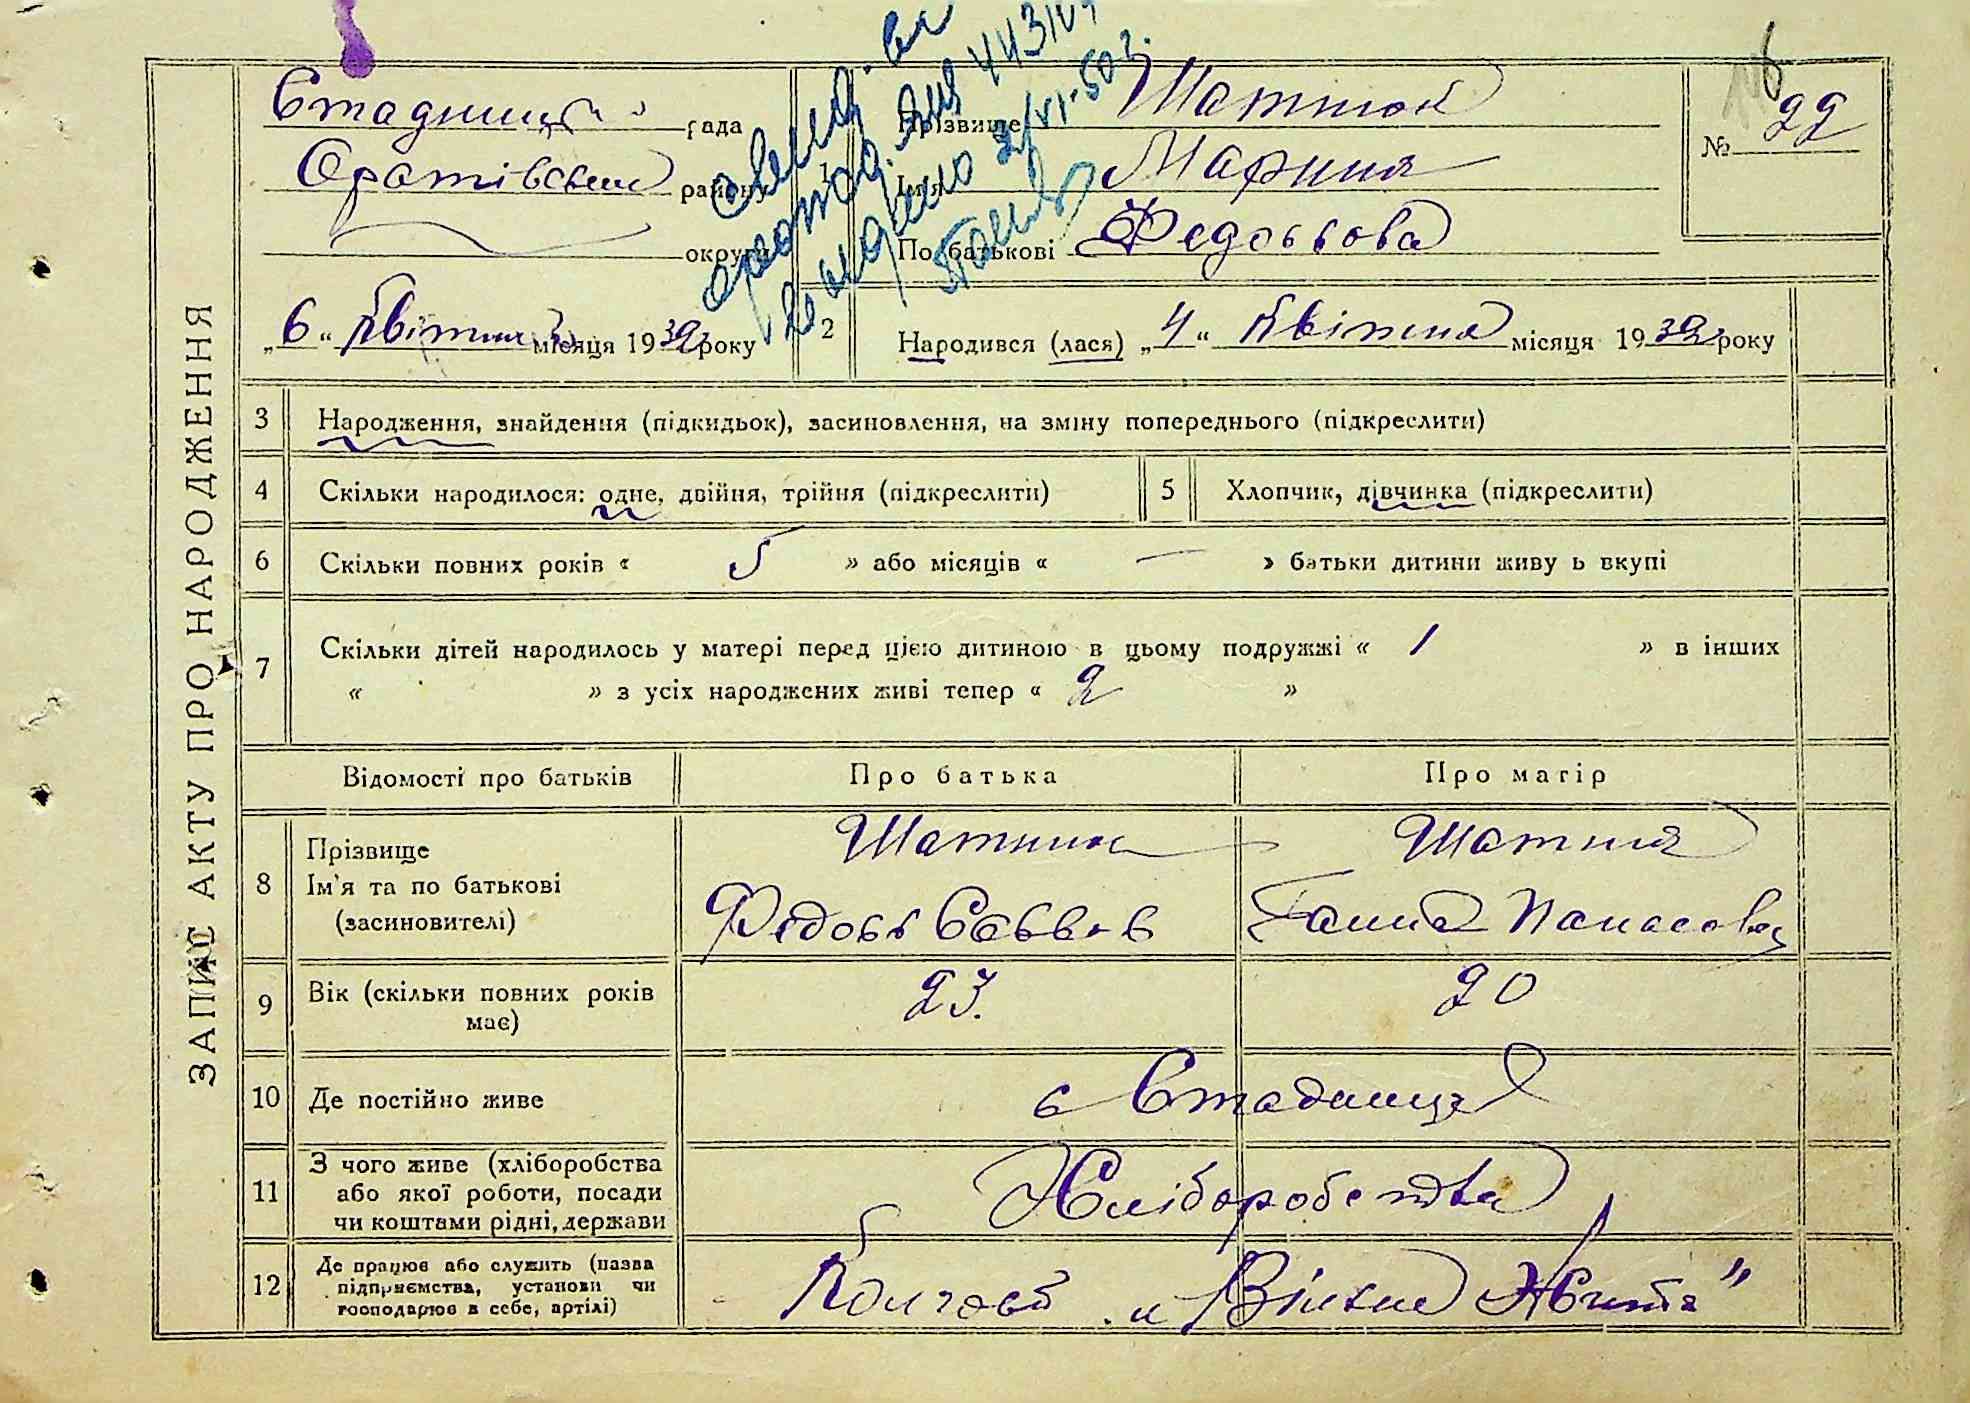 ЗАПИС АКТУ ПРО НАРОДЖЕННЯ
рада
Оратівськ району
округи
„6“ Квітня місяця 1932 року
1
Прізвище
Ім'я Мариня
По батькові Федосьова
№ 22
2 Народився (лася) „4“ Квітня місяця 1932 року
3 Народження, знайдення (підкидьок), засиновлення, на зміну попереднього (підкреслити)
4 Скільки народилося: одне, двійня, трійня (підкреслити)
5 Хлопчик, дівчинка (підкреслити)
6 Скільки повних років « 5 » або місяців « — » батьки дитини живу ь вкупі
7 Скільки дітей народилось у матері перед цією дитиною в цьому подружжі « 1 » в інших
« » з усіх народжених живі тепер « 2 »
Відомості про батьків Про батька Про матір
8 Прізвище
Ім'я та по батькові Федось Саввов Ганна Панасова
(засиновителі)
9 Вік (скільки повних років 23. 20
має)
10 Де постійно живе с Стадниця
11 З чого живе (хліборобства
або якої роботи, посади Хліборобства
чи коштами рідні, держави
12 Де працює або служить (назва
підприємства, установи чи Колгосп „Вільне Життя"
господарює в себе, артілі)